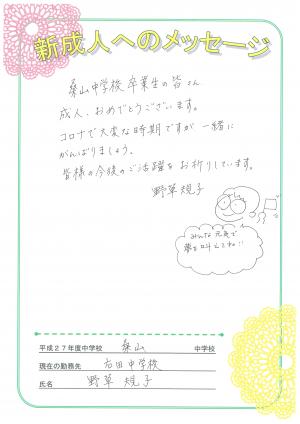 新成人へのメッセージ
桑山中学校 卒業生の皆さん
成人、おめでとうございます。
コロナで大変な時期ですが 一緒に
がんばりましょう。
皆様の今後のご活躍をお祈りしています。
野草 規子
みんな 元気で
夢を叶えてね!!
平成27年度中学校 桑山 中学校
現在の勤務先 右田中学校
氏名 野草 規子